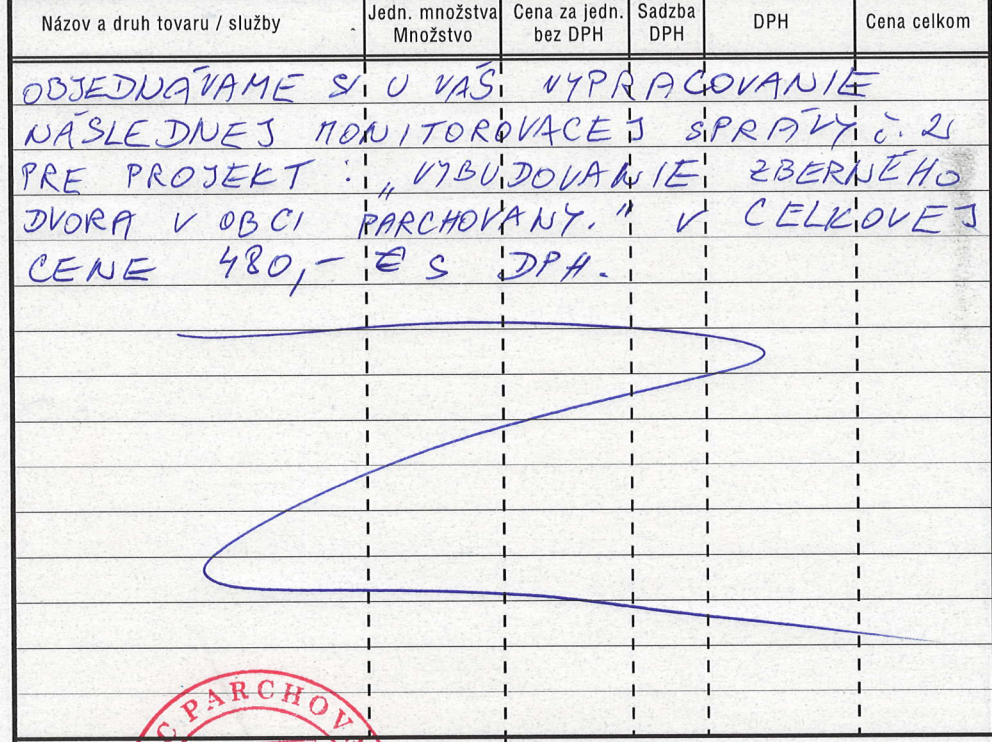 Názov a druh tovaru / služby
Jedn. množstva
Množstvo
Cena za jedn.
bez DPH
Sadzba
DPH
DPH
Cena celkom
OBJEDNÁVAME SI U VÁS VYPRACOVANIE
NÁSLEDNEJ MONITOROVACEJ SPRÁVY č.
PRE PROJEKT : „VYBUDOVANIE ZBERNÉHO
DVORA V OBCI PARCHOVANY." V CELKOVEJ
CENE 480,- € S DPH.
C PARCHOV